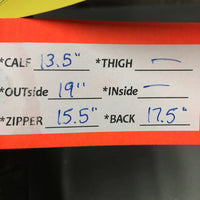 *CALF 13.5" *THIGH —
*OUTside 19" *INside —
*ZIPPER 15.5" *BACK 17.5"